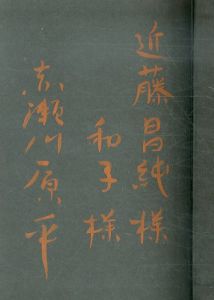 近藤昌純様
和子様
赤瀬川原平